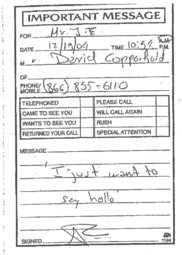 IMPORTANT MESSAGE
FOR Mr. J.E
DATE 12/19/04 TIME 10:54 A.M. P.M.
M r David Copperfield
OF
PHONE/MOBILE (866) 855-6110
TELEPHONED PLEASE CALL
CAME TO SEE YOU WILL CALL AGAIN
WANTS TO SEE YOU RUSH
RETURNED YOUR CALL SPECIAL ATTENTION
MESSAGE
I just want to
say hello
SIGNED